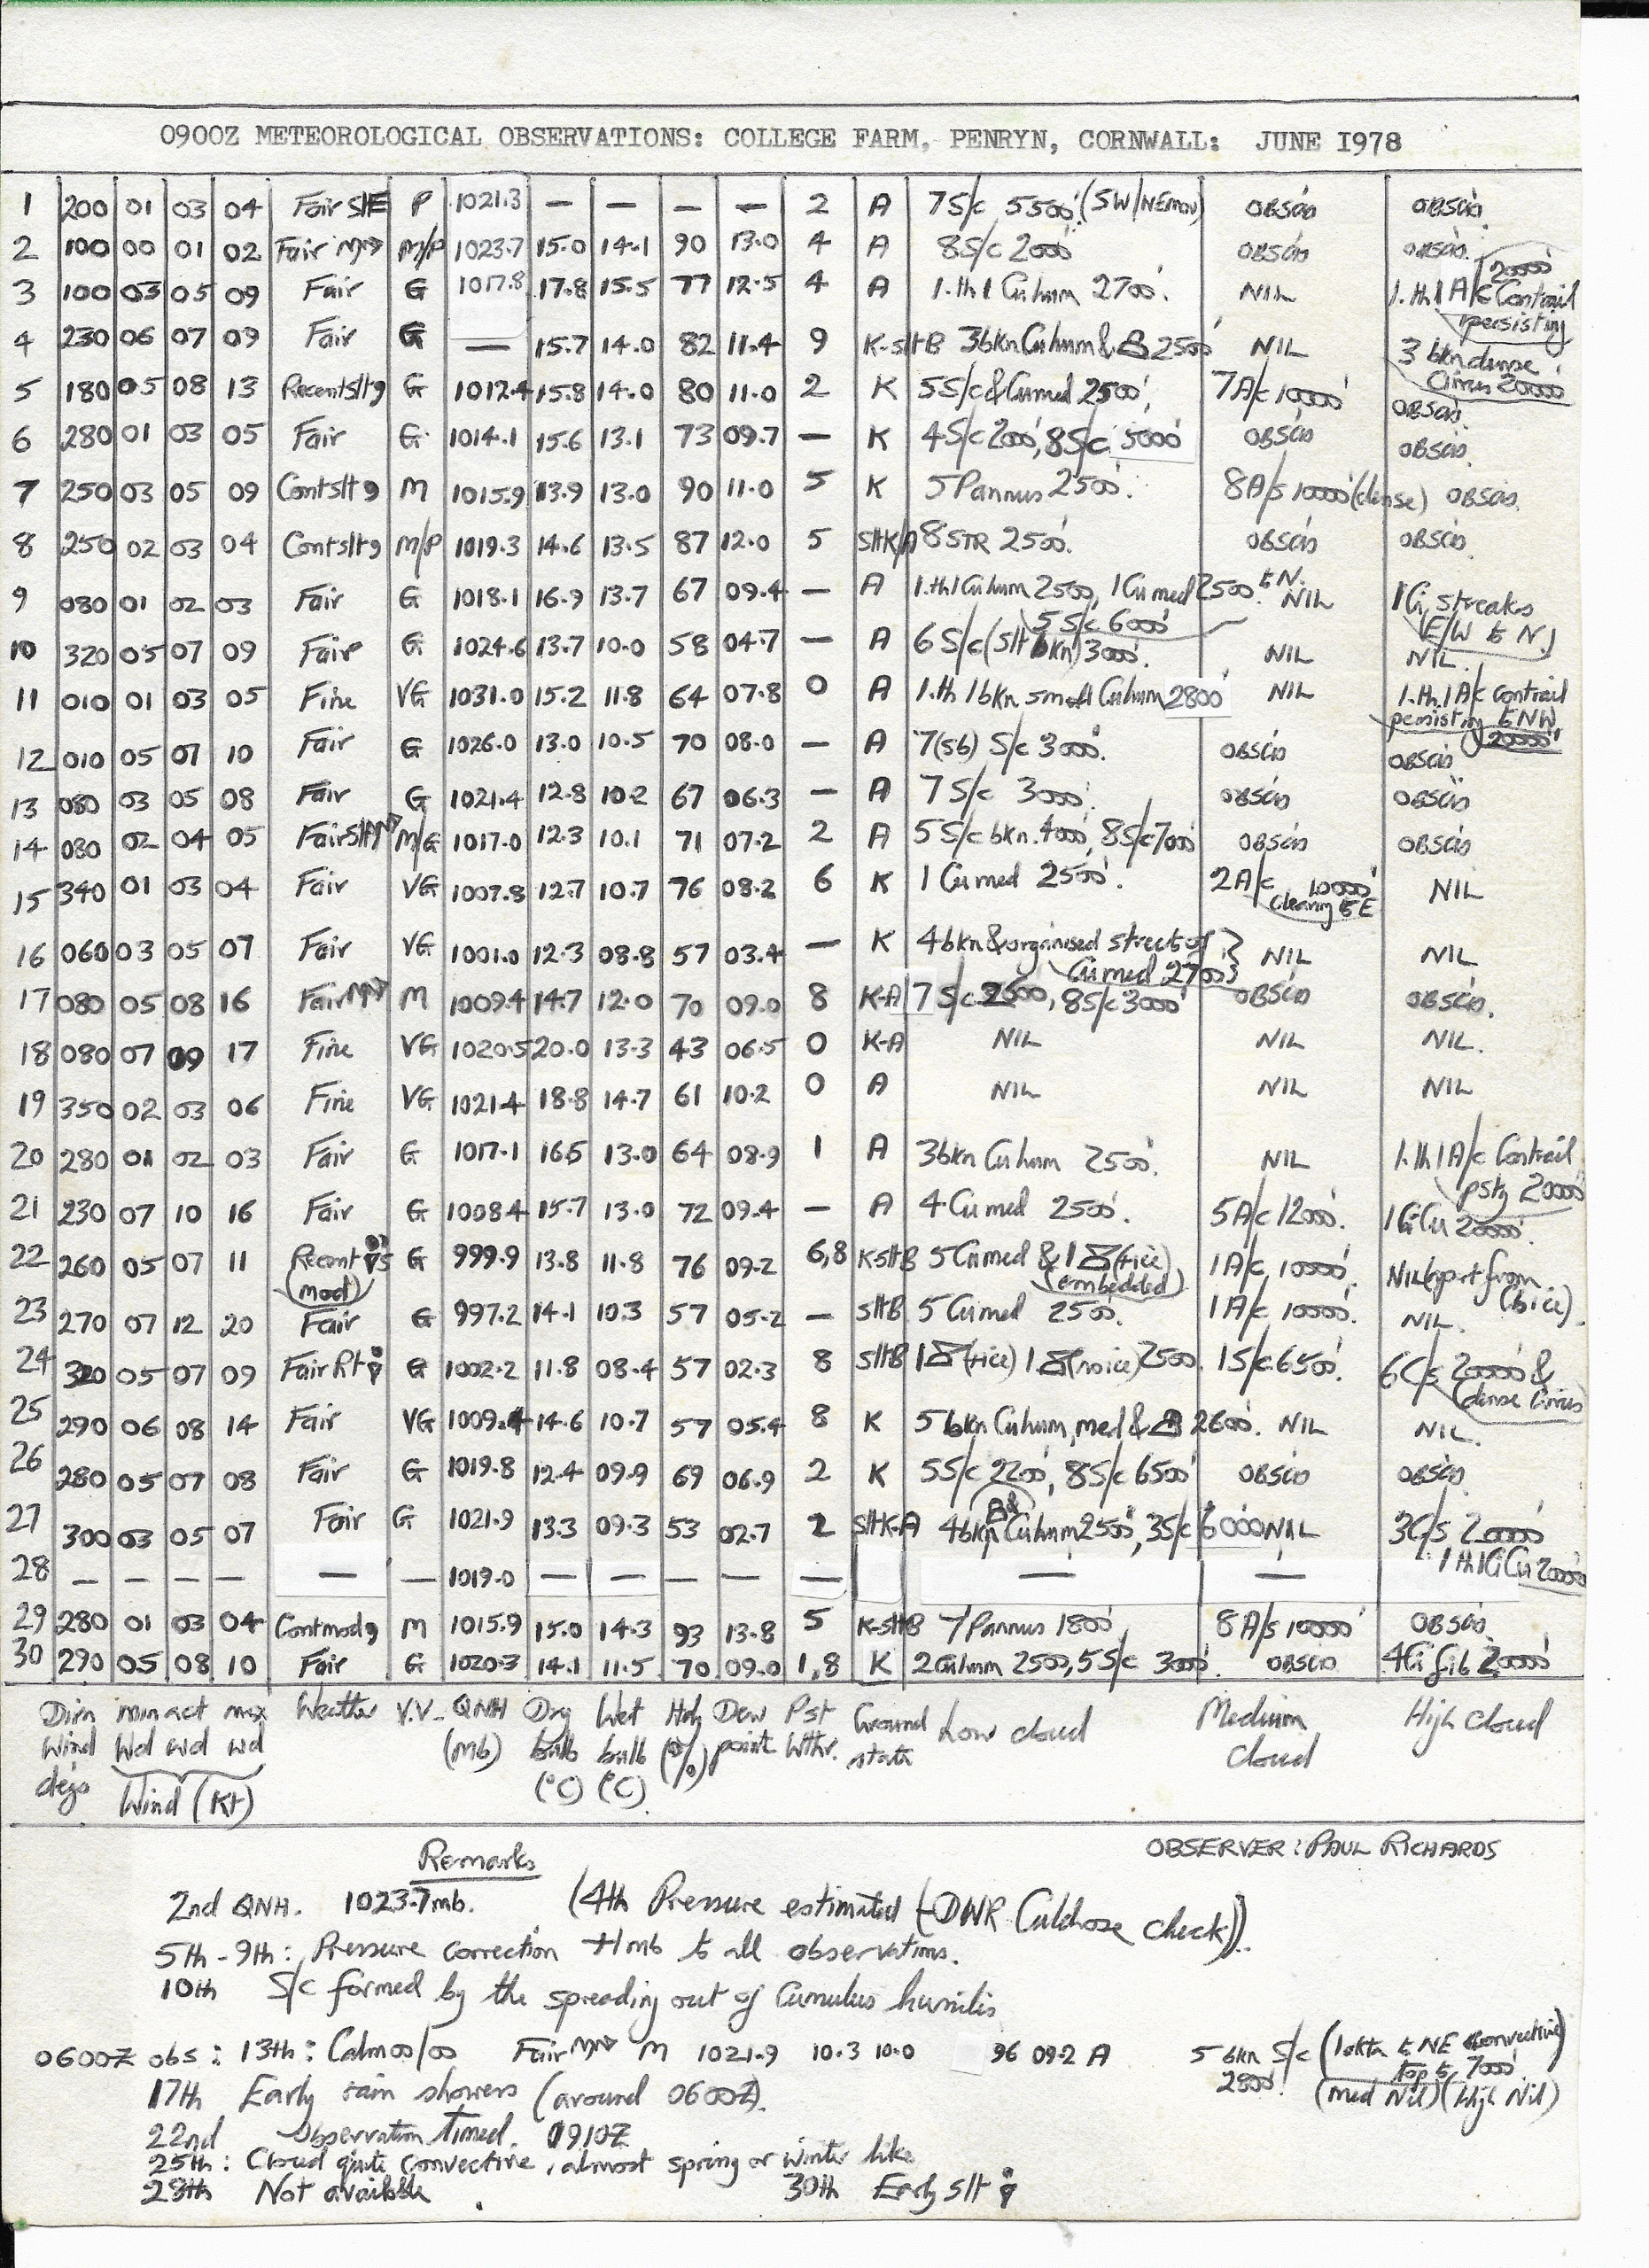 0900Z METEOROLOGICAL OBSERVATIONS: COLLEGE FARM, PENRYN, CORNWALL: JUNE I978
1 200 01 03 04 Fair P 1021.3 — — — — 2 A 7 S/c 5500' (SW/NEmov) OBSCD OBSCD.
2 100 00 01 02 Fair M/P 1023.7 15.0 14.1 90 13.0 4 A 8 S/c 2000' OBSCD OBSCD.
3 100 03 05 09 Fair G 1017.8 17.8 15.5 77 12.5 4 A 1.th1 Cu hum 2700'. NIL 1.th1 A/c Contrail persisting 20000'
4 230 06 07 09 Fair G — 15.7 14.0 82 11.4 9 K-sltB 3bkn Cu hum & 2500' NIL 3 bkn dense Cirrus 20000'
5 180 05 08 13 Recent slt 9 G 1012.4 15.8 14.0 80 11.0 2 K 5S/c & Cu med 2500', 7A/c 10000' OBSCD.
6 280 01 03 05 Fair G 1014.1 15.6 13.1 73 09.7 — K 4S/c 2000', 8S/c 5000' OBSCD OBSCD.
7 250 03 05 09 Cont slt 9 M 1015.9 13.9 13.0 90 11.0 5 K 5 Pannus 2500'. 8A/s 10000' (dense) OBSCD.
8 250 02 03 04 Cont slt 9 M/P 1019.3 14.6 13.5 87 12.0 5 sltK/A 8 STR 2500'. OBSCD OBSCD.
9 080 01 02 03 Fair G 1018.1 16.9 13.7 67 09.4 — A 1.th1 Cu hum 2500', 1 Cu med 2500' to N. 5 S/c 6000' NIL 1Ci streaks (E/W to N)
10 320 05 07 09 Fair G 1024.6 13.7 10.0 58 04.7 — A 6 S/c (slt bkn) 3000'. NIL NIL.
11 010 01 03 05 Fine VG 1031.0 15.2 11.8 64 07.8 0 A 1.th 1bkn small Cu hum 2800' NIL 1.th1 A/c contrail persisting to NW 20000'
12 010 05 07 10 Fair G 1026.0 13.0 10.5 70 08.0 — A 7(sb) S/c 3000'. OBSCD OBSCD
13 080 03 05 08 Fair G 1021.4 12.8 10.2 67 06.3 — A 7 S/c 3000'. OBSCD OBSCD
14 080 02 04 05 Fair slt M/G 1017.0 12.3 10.1 71 07.2 2 A 5 S/c bkn. 4000', 8S/c 7000' OBSCD OBSCD
15 340 01 03 04 Fair VG 1007.8 12.7 10.7 76 08.2 6 K 1 Cu med 2500'. 2A/c 10000' clearing to E NIL
16 060 03 05 07 Fair VG 1001.0 12.3 08.8 57 03.4 — K 4bkn & organised streets of Cu med 2700' NIL NIL
17 080 05 08 16 Fair M 1009.4 14.7 12.0 70 09.0 8 K-A 7 S/c 2500, 8S/c 3000' OBSCD OBSCD.
18 080 07 09 17 Fine VG 1020.5 20.0 13.3 43 06.5 0 K-A NIL NIL NIL.
19 350 02 03 06 Fine VG 1021.4 18.8 14.7 61 10.2 0 A NIL NIL NIL
20 280 01 02 03 Fair G 1017.1 16.5 13.0 64 08.9 1 A 3bkn Cu hum 2500'. NIL 1.th1 A/c Contrail pstg 20000'
21 230 07 10 16 Fair G 1008.4 15.7 13.0 72 09.4 — A 4 Cu med 2500'. 5A/c 12000'. 1CiCu 20000'.
22 260 05 07 11 Recent (mod) G 999.9 13.8 11.8 76 09.2 6,8 K-sltB 5 Cu med & 1 (+ice) (embedded) 1A/c 10000'. NIL (apart from (bice).
23 270 07 12 20 Fair G 997.2 14.1 10.3 57 05.2 — sltB 5 Cu med 2500'. 1A/c 10000'. NIL.
24 320 05 07 09 Fair Rt G 1002.2 11.8 08.4 57 02.3 8 sltB 1 (+ice) 1 (noice) 2500. 1S/c 6500'. 6C/s 20000' & (dense Cirrus)
25 290 06 08 14 Fair VG 1009.4 14.6 10.7 57 05.4 8 K 5 bkn Cu hum, med & 2600'. NIL NIL.
26 280 05 07 08 Fair G 1019.8 12.4 09.9 69 06.9 2 K 5S/c 2200', 8S/c 6500' OBSCD OBSCD.
27 300 03 05 07 Fair G 1021.9 13.3 09.3 53 02.7 2 sltK-A 4bkn Cu hum 2500', 3S/c 6000 NIL 3C/s 20000' 1 th1CiCu 20000'
28 — — — — — — 1019.0 — — — — — — —
29 280 01 03 04 Cont mod 9 M 1015.9 15.0 14.3 93 13.8 5 K-sltB 7 Pannus 1800' 8 A/s 10000' OBSCD.
30 290 05 08 10 Fair G 1020.3 14.1 11.5 70 09.0 1,8 K 2 Cu hum 2500, 5S/c 3000'. OBSCD 4Ci fib 20000'
Dirn min act max Weather V.V. QNH Dry Wet Hdy Dew Pst Ground Low cloud Medium High cloud
Wind Wd wd wd (Mb) bulb bulb (%) point Wthr. state Cloud
degs Wind (Kt) (°C) (°C)
Remarks OBSERVER: PAUL RICHARDS
2nd QNH. 1023.7mb. (4th Pressure estimated (-DWR Culdrose check)).
5th - 9th: Pressure correction +1mb to all observations.
10th S/c formed by the spreading out of Cumulus humilis
0600Z obs: 13th: Calm 00/00 Fair M 1021.9 10.3 10.0 96 09.2 A 5 bkn S/c 2800'. (1okta to NE convective top to 7000' (med Nil) (High Nil)
17th Early rain showers (around 0600Z).
22nd Observation timed. 0910Z
25th: Cloud quite convective, almost spring or winter like
28th Not available. 30th Early slt